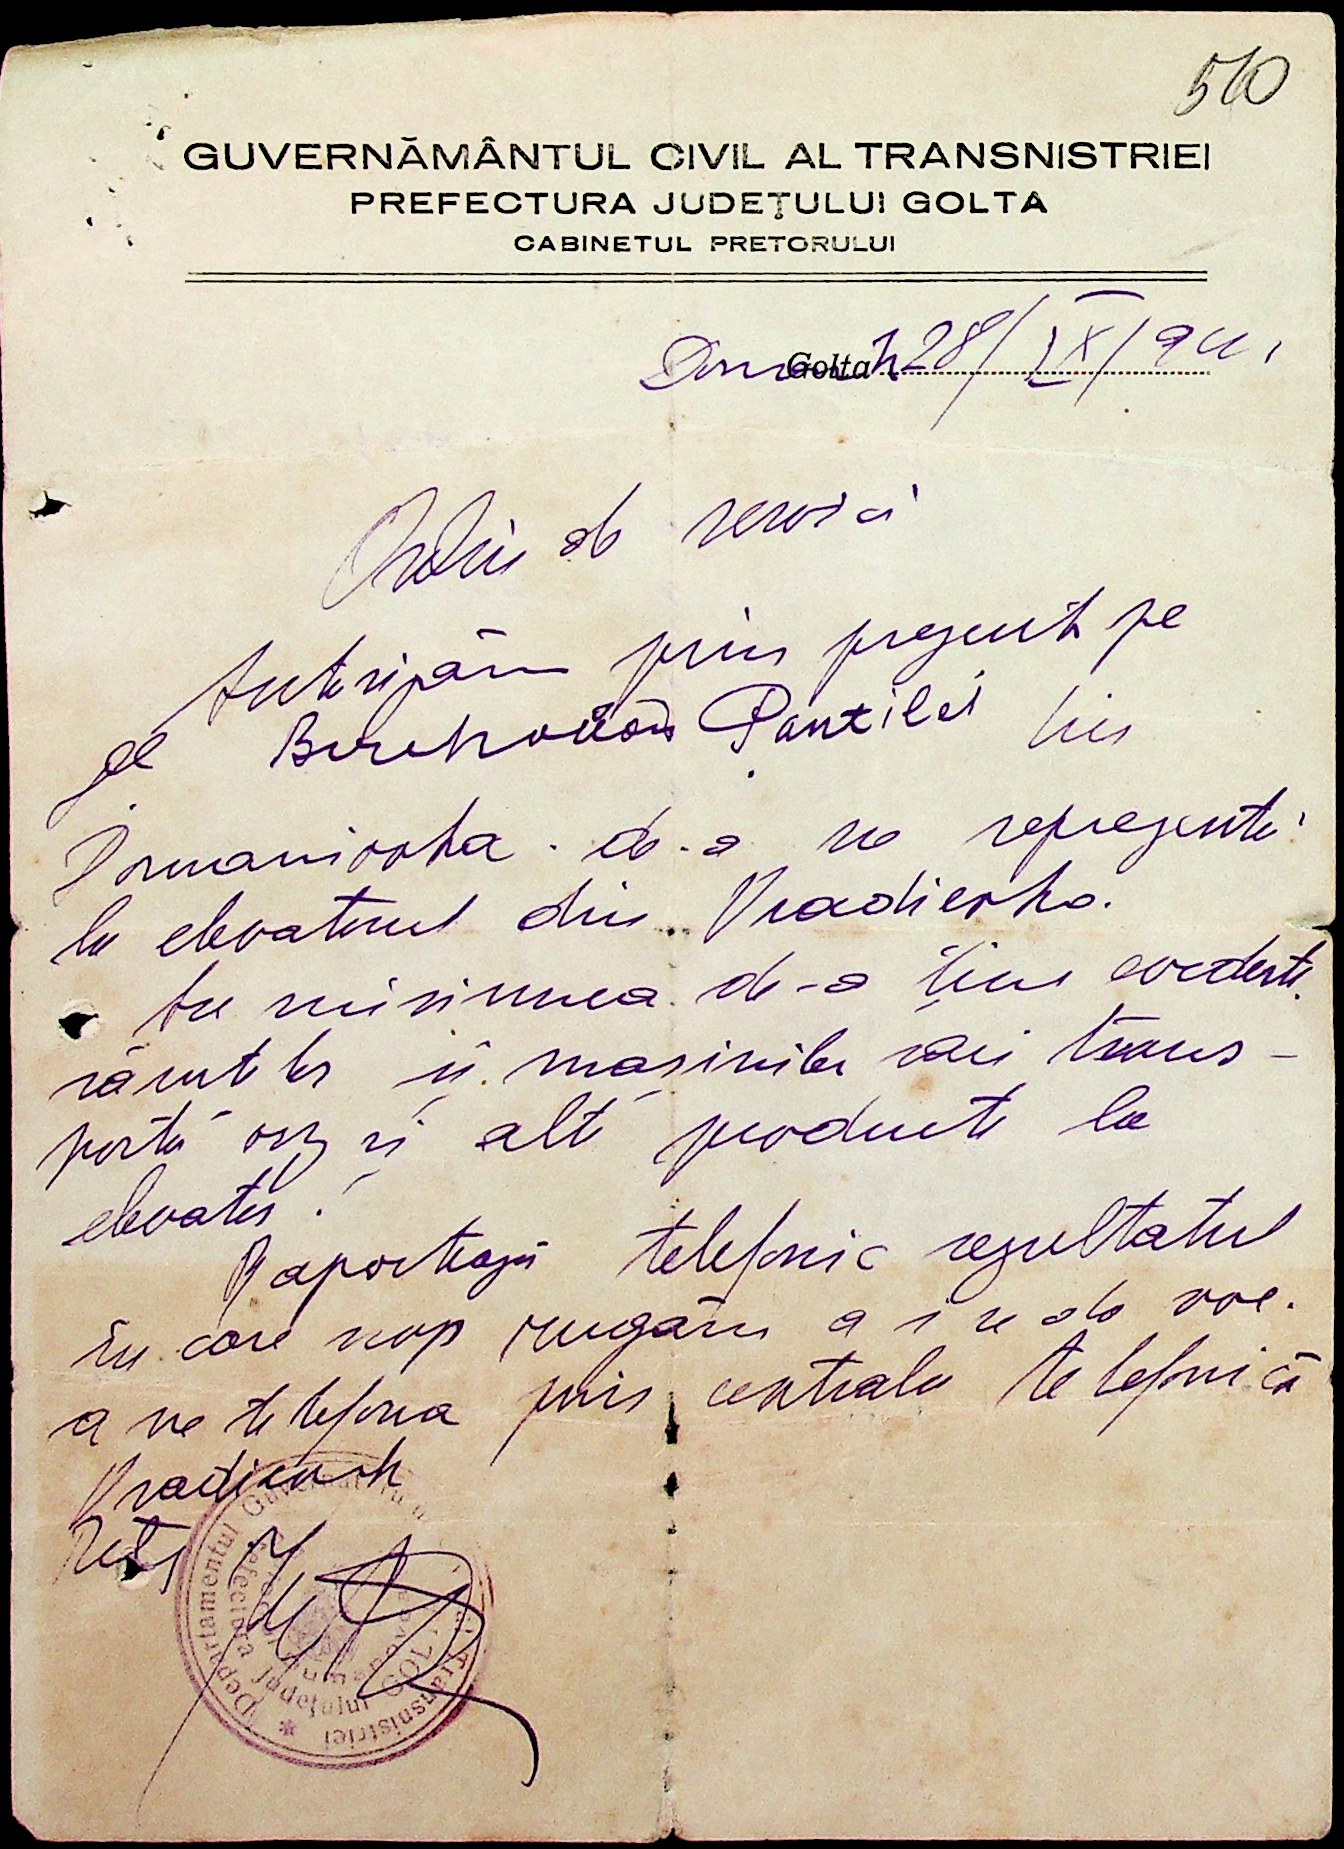 510
GUVERNĂMÂNTUL CIVIL AL TRANSNISTRIEI
PREFECTURA JUDEŢULUI GOLTA
CABINETUL PRETORULUI
Golta 28/IX/941
Ordin de serviciu
Autorizăm prin prezenta pe
Pantilei din
Domaniovka de-a ne reprezenta
la elevatorul din Vradievka.
Are misiunea de-a ţine evidenţa
căruţelor şi maşinilor cari trans-
portă orz şi alte producte la
elevator.
Raportează telefonic rezultatul
în care scop rugăm a i se da voe
a ne telefona prin centrala telefonică
Vradievka
Departamentul Guvernământului Transnistriei
Prefectura Judeţului Golta